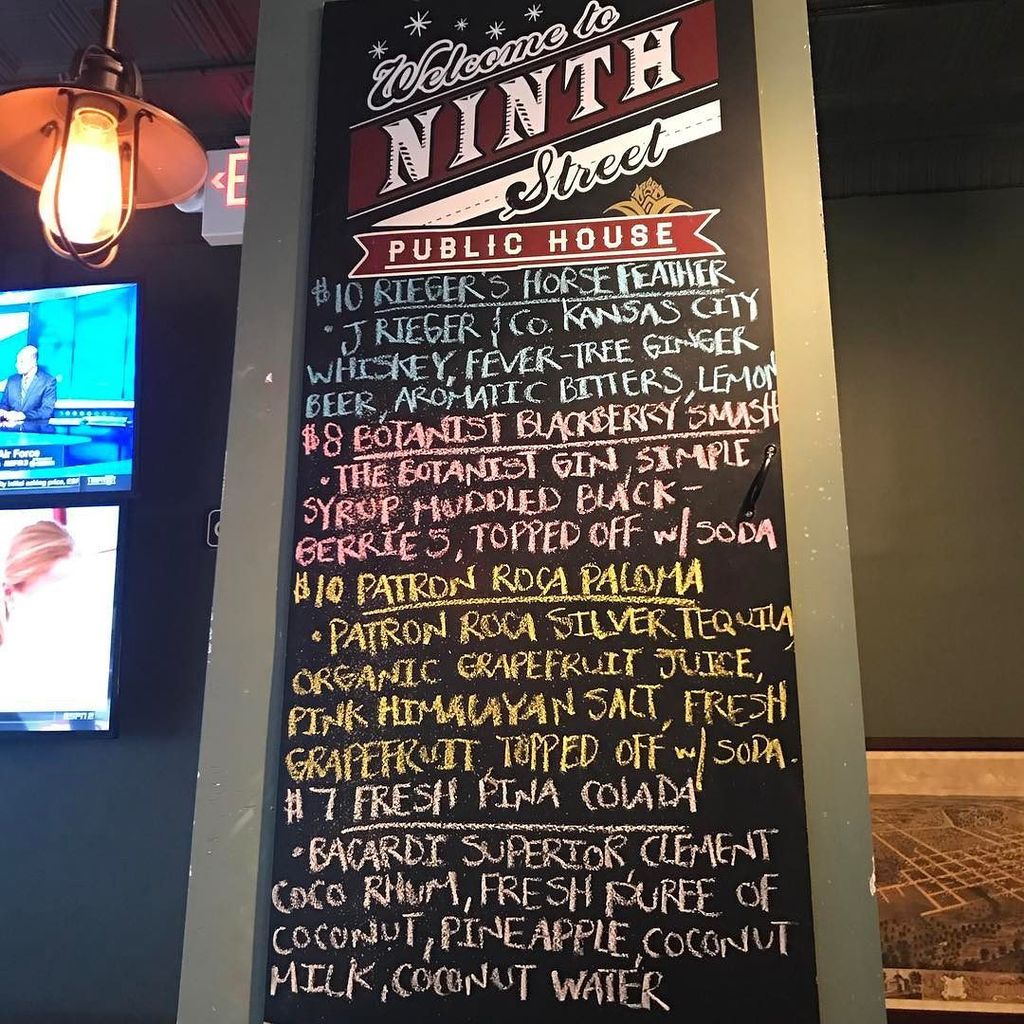 Welcome to
NINTH
Street
PUBLIC HOUSE
$10 RIEGER'S HORSE FEATHER
• J RIEGER & CO. KANSAS CITY
WHISKEY, FEVER-TREE GINGER
BEER, AROMATIC BITTERS, LEMON
$8 BOTANIST BLACKBERRY SMASH
• THE BOTANIST GIN, SIMPLE
SYRUP, MUDDLED BLACK-
BERRIES, TOPPED OFF w/ SODA
$10 PATRON ROCA PALOMA
• PATRON ROCA SILVER TEQUILA,
ORGANIC GRAPEFRUIT JUICE,
PINK HIMALAYAN SALT, FRESH
GRAPEFRUIT, TOPPED OFF w/ SODA.
$7 FRESH PINA COLADA
• BACARDI SUPERIOR CLEMENT
COCO RHUM, FRESH PUREE OF
COCONUT, PINEAPPLE, COCONUT
MILK, COCONUT WATER
E
Air Force
ESPN2